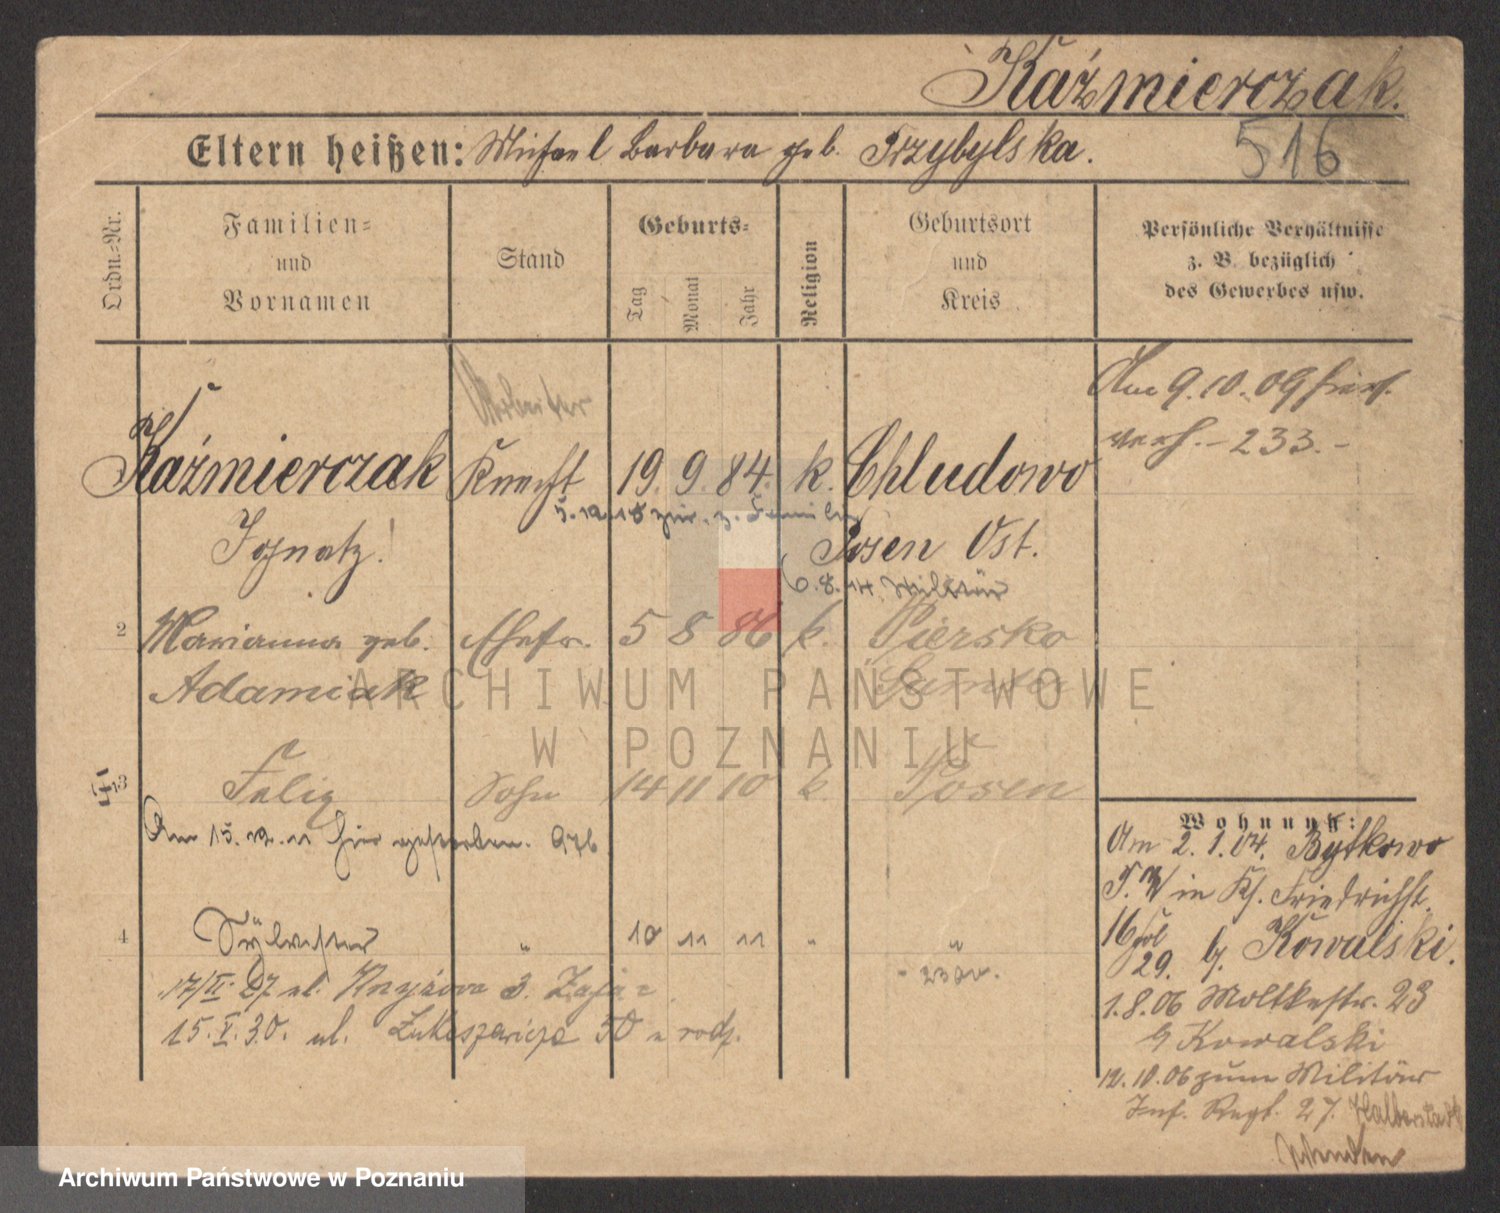 Kaźmierczak.
Eltern heißen: Michael Barbara geb. Przybylska.
516
Ordn.-Nr.
Familien-
und
Vornamen
Stand
Geburts-
Tag
Monat
Jahr
Religion
Geburtsort
und
Kreis
Persönliche Verhältnisse
z. B. bezüglich
des Gewerbes usw.
Am 9.10.09 hier
verh. - 233. -
Arbeiter
Kaźmierczak Knecht 19. 9. 84. k. Chludowo
5.12.18 zur. z. Familie
Ignatz! Posen Ost.
6.8.14 Militär
2 Marianna geb. Ehefr. 5 8 86 k. Piersko
Adamiak Samter
ARCHIWUM PAŃSTWOWE
W POZNANIU
3 Felix Sohn 14 11 10 k. Posen
Am 15.12.11 hier gestorben. 976
4 Sylwester " 10 11 11 " "
17/II 27 ul. Knyżowa 3.
15.V.30. ul. Łukaszewicza 50 u rodz.
Wohnung:
Am 2.1.04. Bytkowo
in Kl. Friedrichst.
16 Jol
29. b. Kowalski.
1.8.06 Moltkestr. 23
b Kowalski
12.10.06 zum Militär
Inf. Regt. 27. Halberstadt
Archiwum Państwowe w Poznaniu